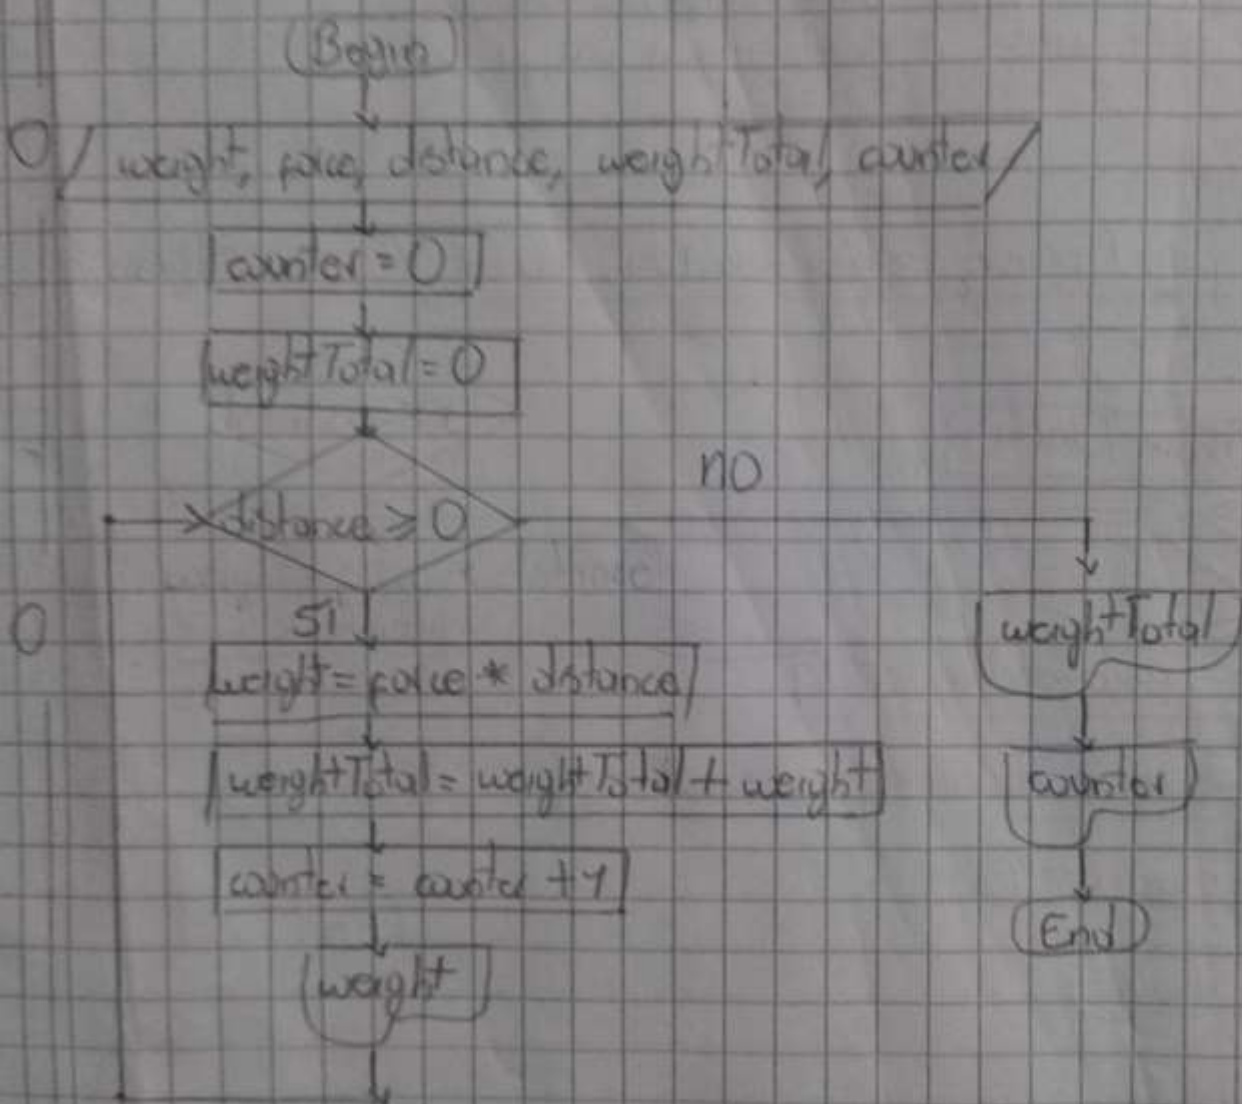 Begin
weight, force, distance, weightTotal, counter
counter = 0
weightTotal = 0
distance ≥ 0
no
SI
weight = force * distance
weightTotal = weightTotal + weight
counter = counter + 1
weight
weightTotal
counter
End